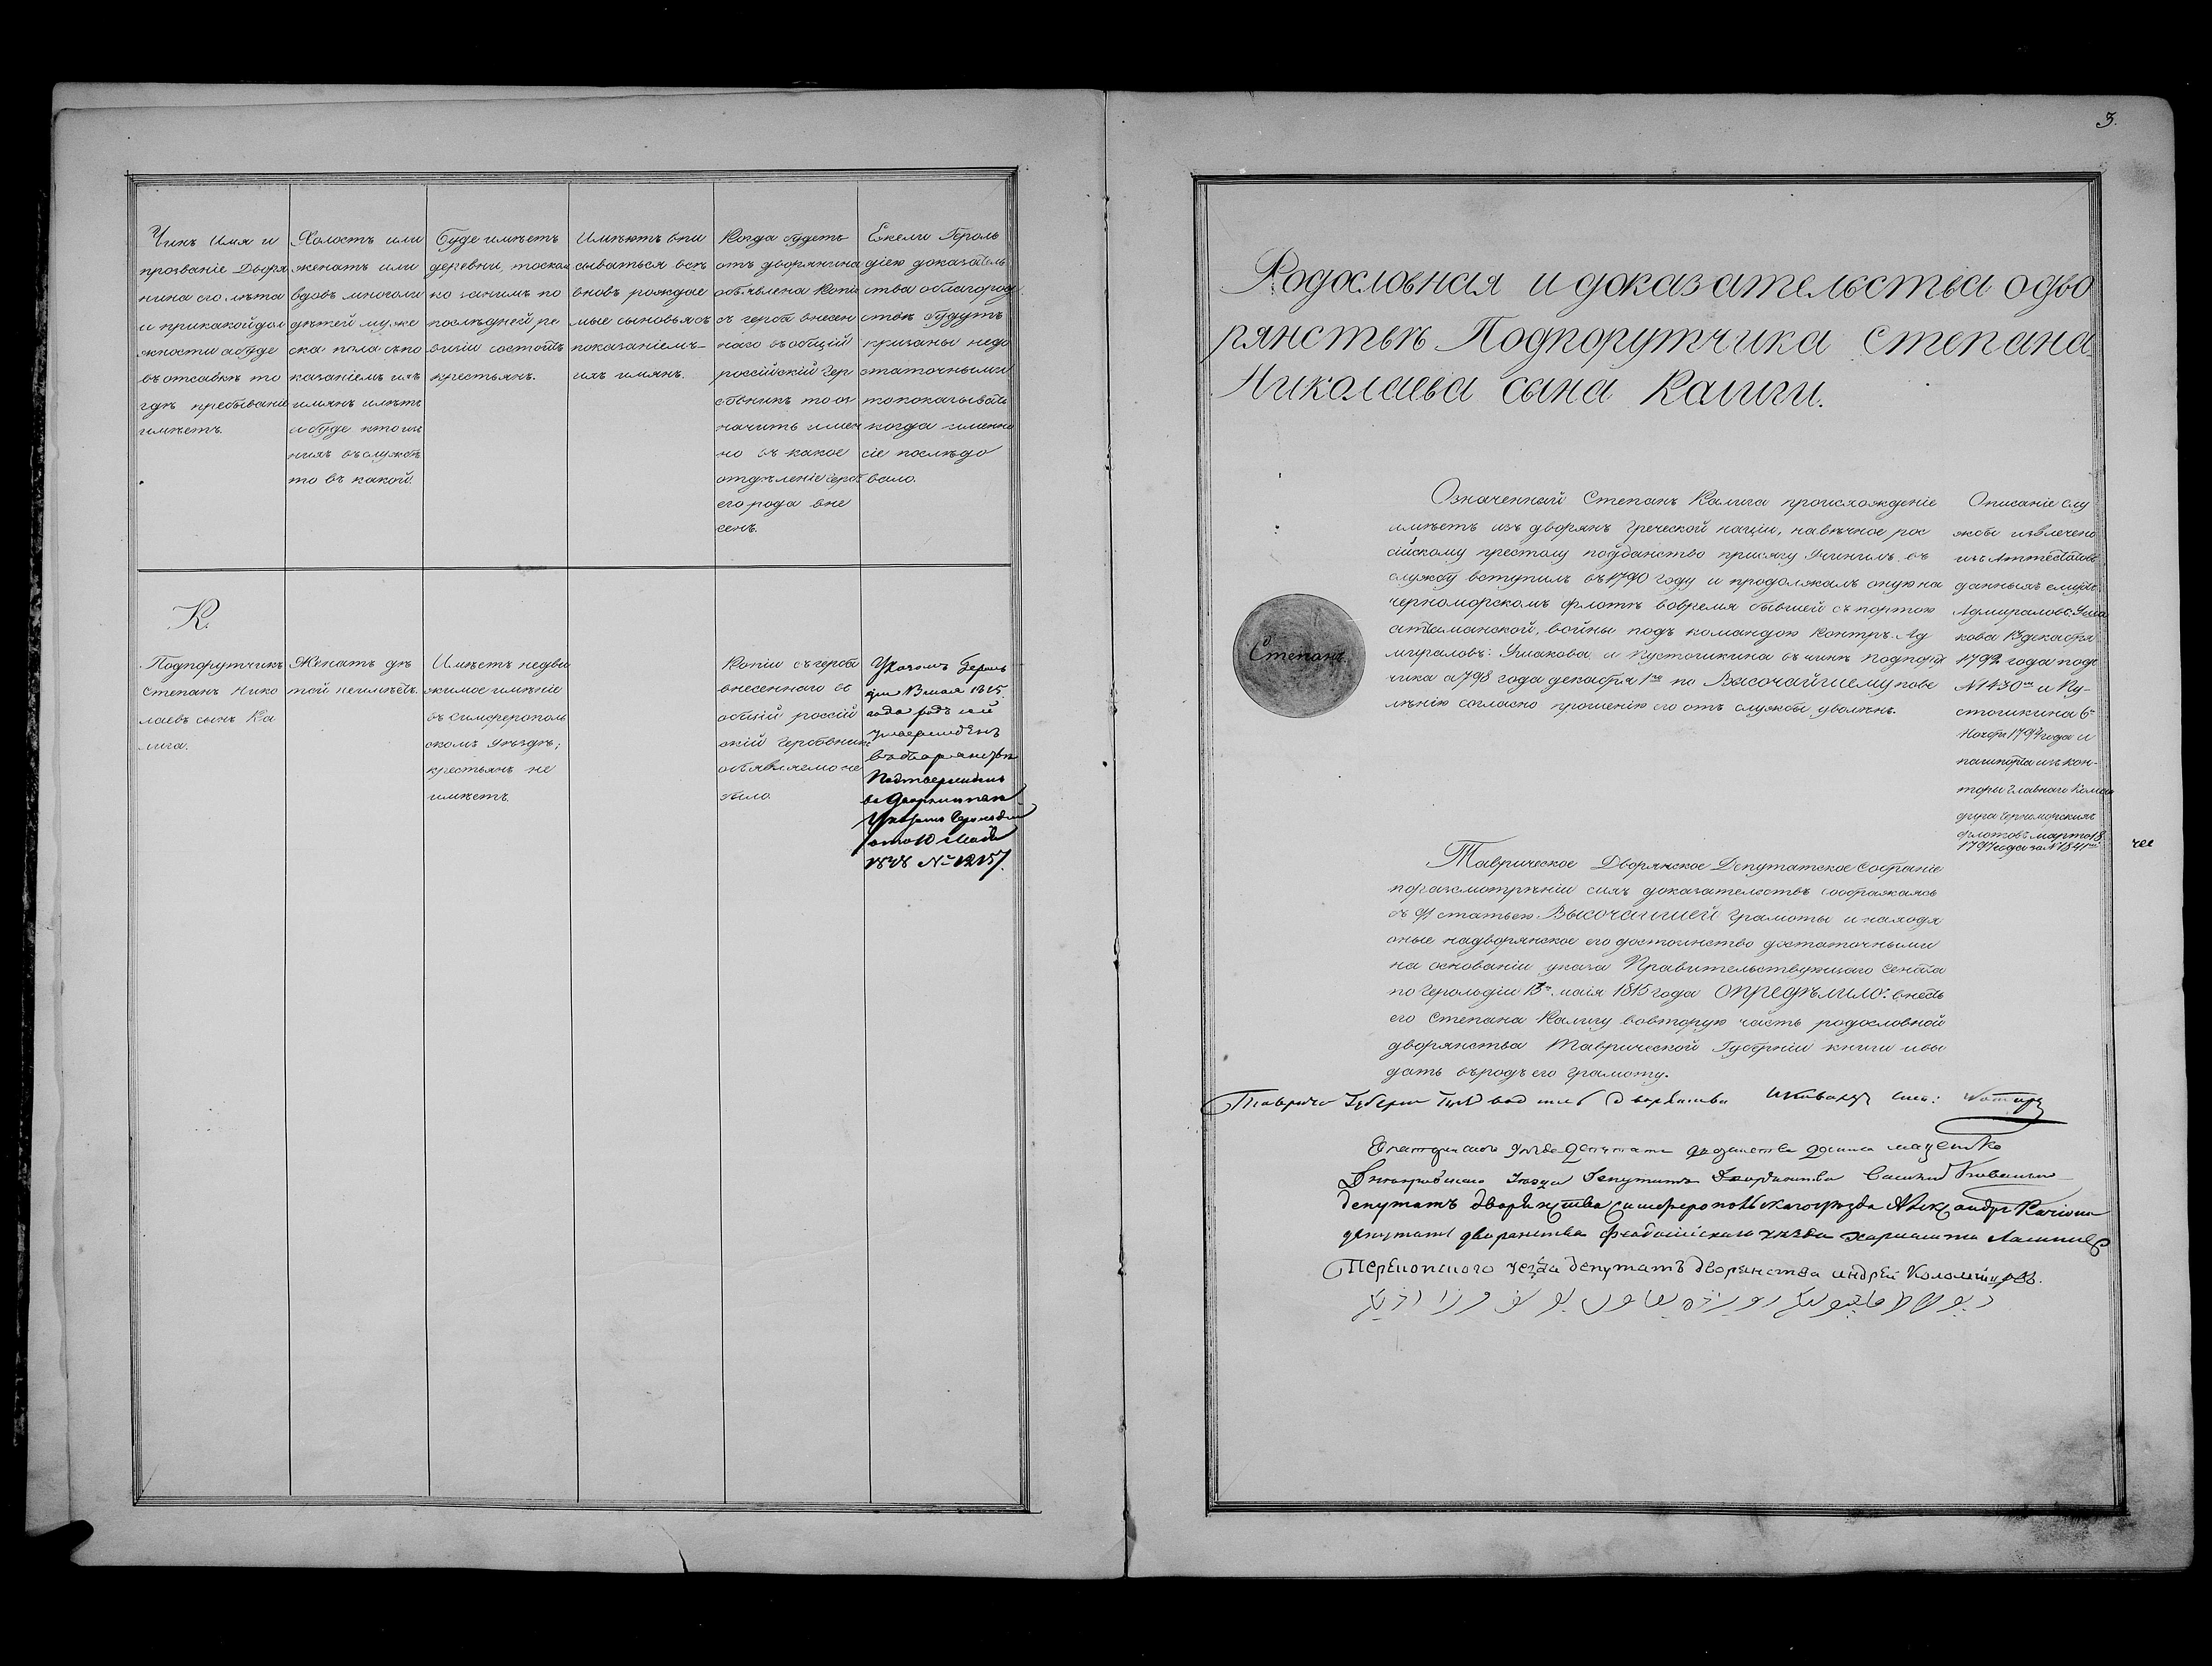 Чинъ Имя и
прозваніе Дворя
нина его лѣта
и прикакой дол
жности абуде
въ отставкѣ то
гдѣ пребываніе
имѣетъ.
Холостъ или
женатъ или
вдовъ многоли
дѣтей муже
ска пола съпо
казаніемъ ихъ
имянъ и лѣтъ
и буде кто изъ
нихъ въ службѣ
то въ какой.
Буде имѣетъ
деревни, тоскол
ко занимъ по
послѣдней ре
визіи состоитъ
крестьянъ.
Имѣютъ впи
сываться всѣ
вновь рождае
мые сыновья съ
показаніемъ
ихъ имянъ.
Когда будетъ
отъ дворянина
объявлена копія
съ герба внесен
наго въ общій
россійскій гер
бовникъ то оз
начить имен
но въ какое
отдѣленіе гербъ
его рода вне
сенъ.
Ежели Героль
діею доказатель
ства облагород
ствѣ будутъ
признаны недо
статочными
то показывать
когда именно
сіе послѣдо
вало.
К.
Подпорутчикъ
Степанъ Нико
лаевъ сынъ Ка
лига.
Женатъ дѣ
тей неимѣетъ.
Имѣетъ недви
жимое имѣніе
въ симферополь
скомъ уѣздѣ;
крестьянъ не
имѣетъ.
Копіи съ герба
внесеннаго въ
общій россій
скій гербовникъ
объявляемо не
было.
Указомъ Героль
діи 13 маія 1815.
года родъ сей
утвержденъ
въ дворянствѣ
Подтвержденъ
въ Дворянствѣ
Указомъ Герольдіи
отъ 10 Маія
1848 № 12157.
3.
Родословная и доказательства одво
рянствѣ Подпорутчика Степана
Николаева сына Калиги.
Степанъ.
Означенный Степанъ Калига происхожденіе
имѣетъ изъ дворянъ греческой націи, на вѣчное рос
сійскому престолу подданство присягу учинилъ въ
службу вступилъ въ 1790 году и продолжалъ оную на
черноморскомъ флотѣ вовремя бывшей съ портою
аттаманской, войны подъ командою Контръ. Ад
мираловъ: Ушакова, и Пустошкина въ чинѣ подпорут
чика а 798 года декабря 1го по Высочайшему пове
лѣнію согласно прошенію его отъ службы уволенъ.
Описаніе слу
жбы извлечено
изъ Аттестатовъ
данныхъ ему отъ
Адмираловъ: Уша
кова 13 декабря
1792 года подъ
№ 1430м и Пу-
стошкина 6го
Ноября 1797 года и
пашпорта изъ кон-
торы главнаго Коман
дира Черноморскихъ
флотовъ марта 18
1799 года за № 1841м
Таврическое Дворянское Депутатское Собраніе
поразсмотрѣніи сихъ доказательствъ соображаясь
съ 91 статьею Высочайшей грамоты и находя
оные надворянское его достоинство достаточными
на основаніи указа Правительствующаго Сената
по герольдіи 13го маія 1815 года опредѣлило: внесть
его Степана Калигу вовторую часть родословной
дворянства Таврической Губерніи книги ивы
дать въродъ его грамоту.
депутатъ дворянства симферопольскаго уезда Александръ
депутатъ дворянства Феодосійскаго уезда
Перекопскаго уезда депутатъ дворянства андрей